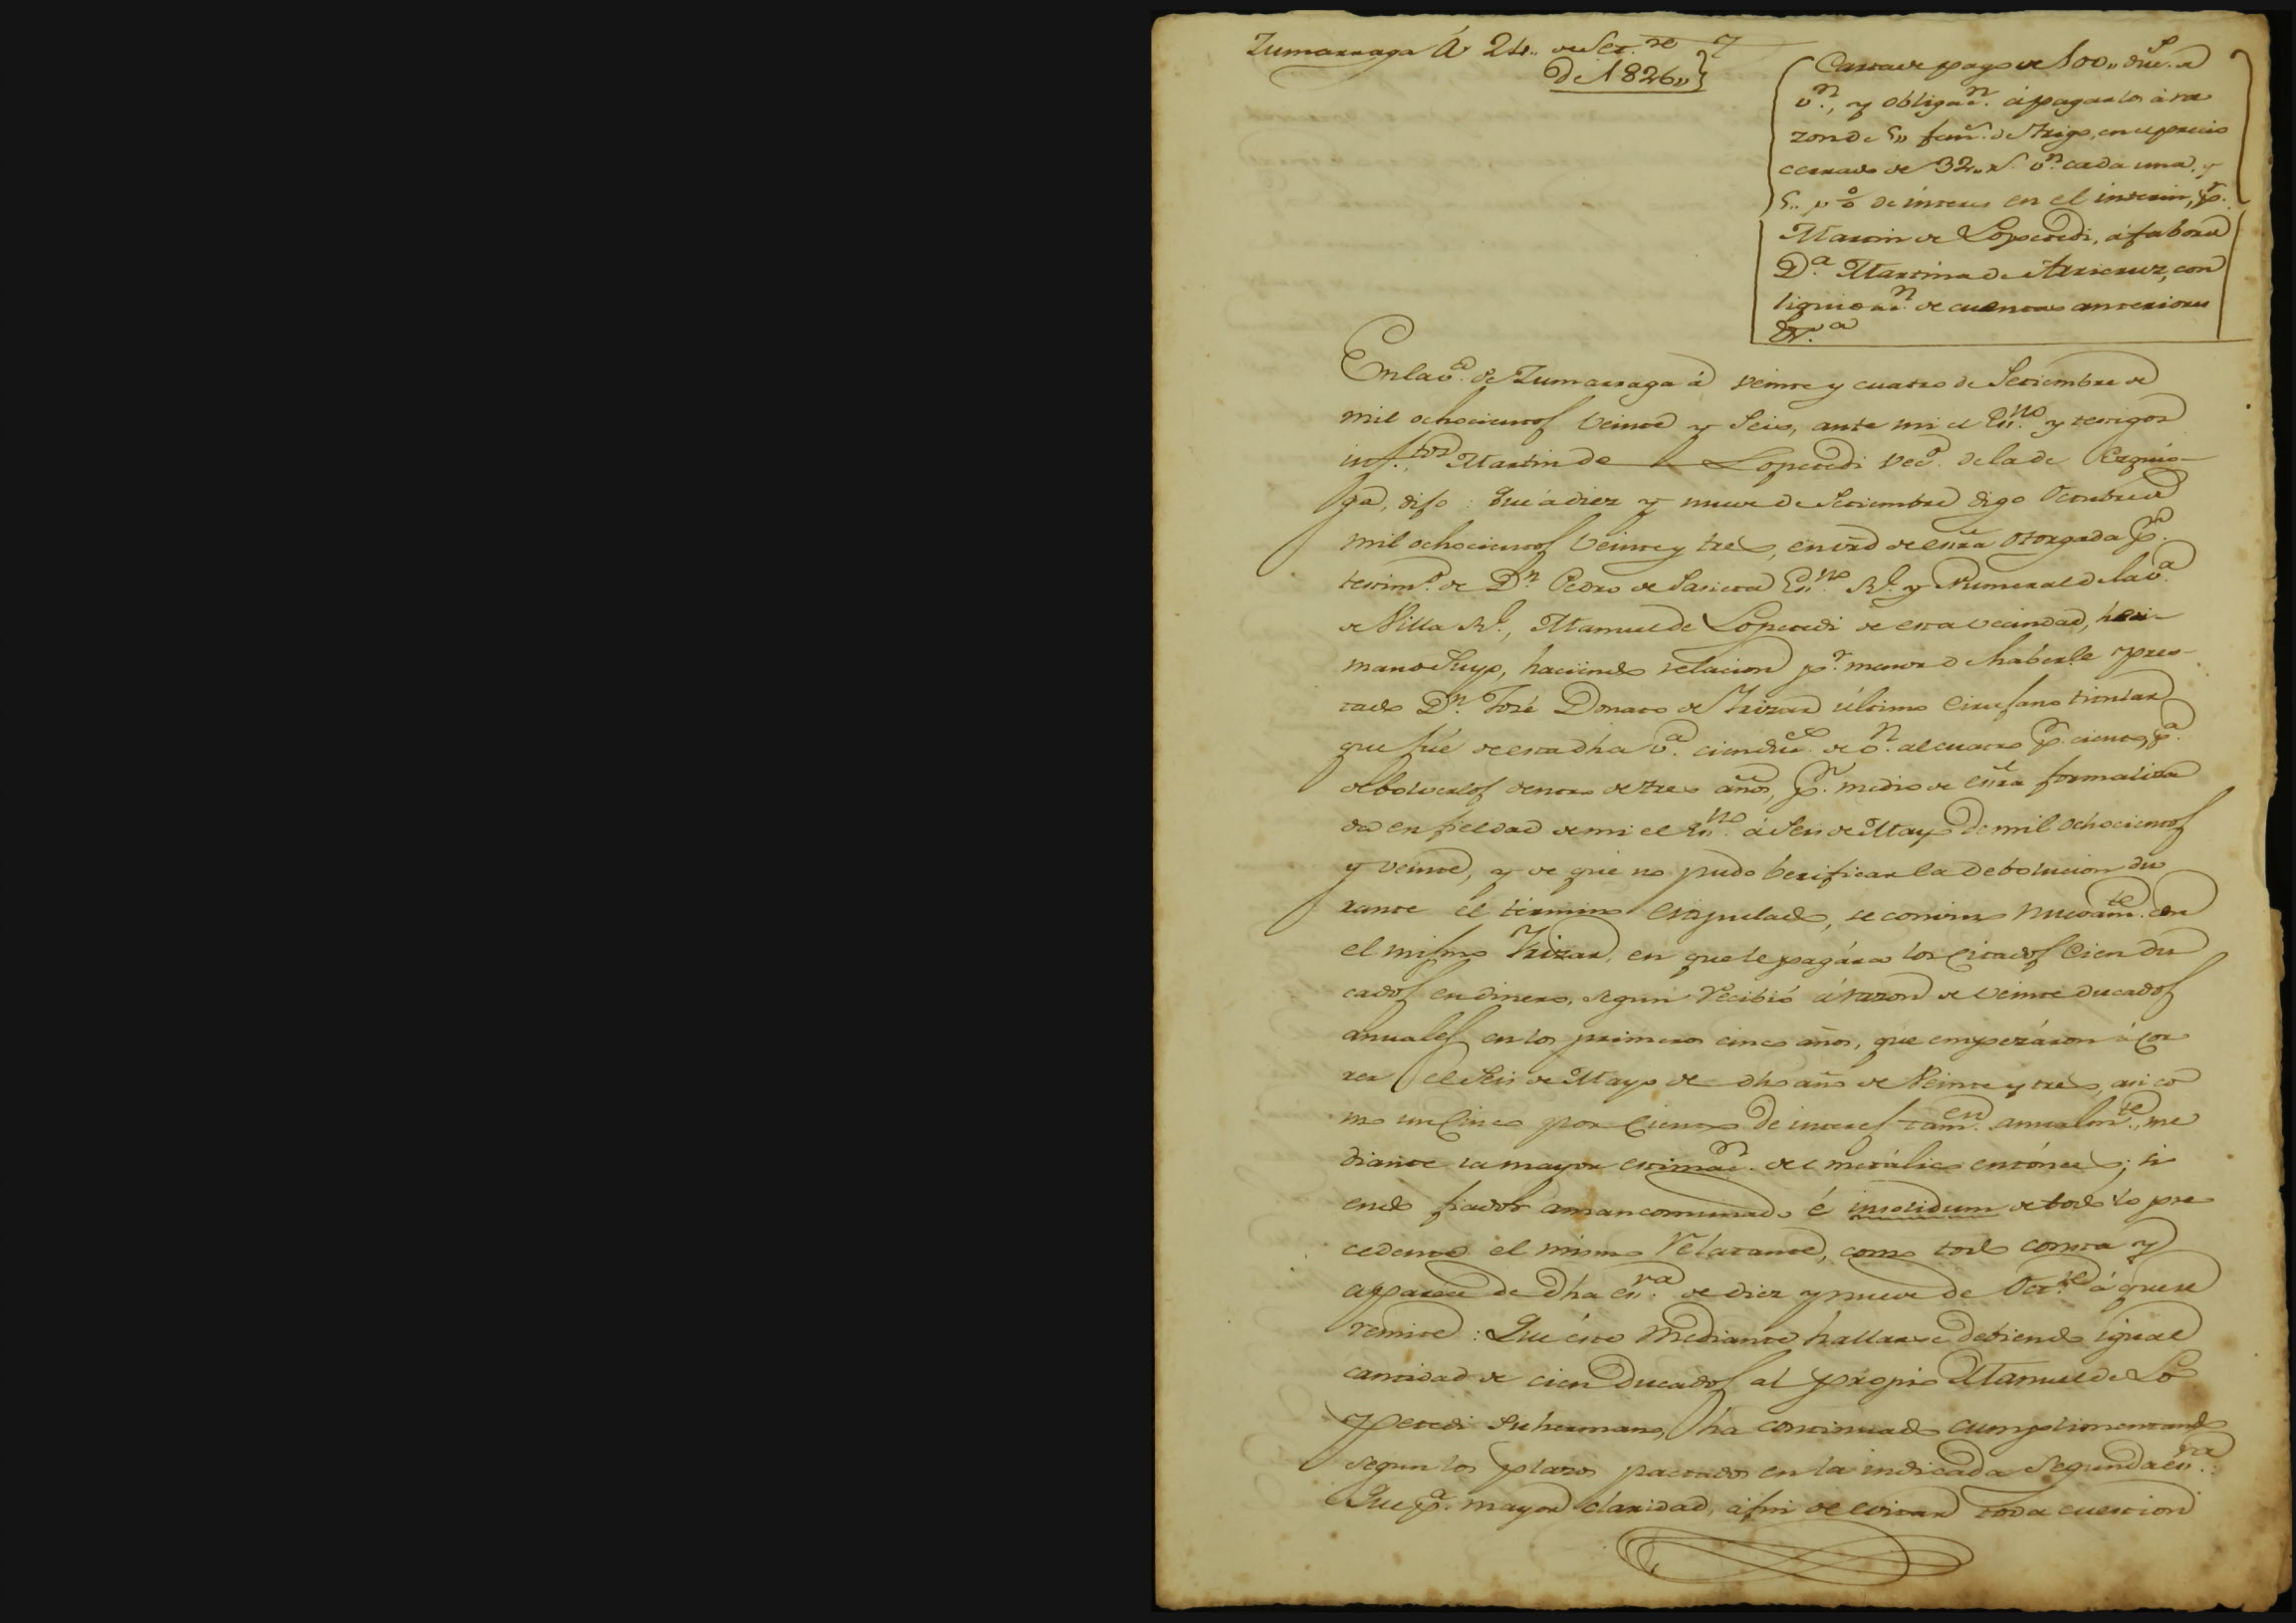 Zumarraga Á 24,, de Set.re
de 1826,,
Carta de pago de 100,, duc.s de
v.n, y obligac.n á pagarlos á ra
zon de 5,, fan.s de trigo, en el precio
cerrado de 32,, r.s v.n cada una, y
5,, p% de interes en el interin, p.r
Martin de Lopetedi, á fabor de
D.a Martina de Arrieruz, con
liquidac.n de cuentas anteriores
&.a
En la v.a de Zumarraga á veinte y cuatro de Setiembre de
mil ochocientos veinte y seis, ante mi el Es.no y testigos
inf.tos Martin de Lopetedi vec.o de la de Ezquio-
ga, dijo: Que á diez y nueve de Setiembre digo Octubre de
mil ochocientos veinte y tres, en vrd de esc.ra otorgada p.r
testim.o de D.n Pedro de Sasieta Es.no R.l y Numeral de la v.a
de Villa R.l, Manuel de Lopetedi de esta vecindad, her-
mano suyo, haciendo relacion p.r menor de haberle pres-
tado D.n José Donato de Irizar último Cirujano titular
que fué de esta dha v.a cien duc.s de v.n al cuatro p.r ciento, p.a
debolverlos dentro de tres años, p.r medio de esc.ra formaliza
da en fieldad de mi el Es.no á seis de Mayo de mil ochocientos
y veinte, y de que no pudo berificar la debolucion du
rante el término estipulado, se convino nuevam.te con
el mismo Irizar, en que le pagára los citados cien du
cados en dinero, segun recibió á razon de veinte ducados
anuales en los primeros cinco años, que empezáron á cor
rer el seis de Mayo de dho año de veinte y tres, asi co
mo un cinco por ciento de interes tam.en anualm.te, me
diante la mayor estimac.n del metálico entónces; si
endo fiador amancomunado é insolidum de todo lo pre
cedente el mismo relatante, como todo consta y
aparece de dha es.ra de diez y nueve de Oct.re á que se
remite: Que éste mediante hallarse debiendo igual
cantidad de cien ducados al propio Manuel de Lo
petedi su hermano, ha continuado cumplimentando
segun los plazos pactados en la indicada segunda es.ra
Que p.a mayor claridad, á fin de evitar toda cuestion